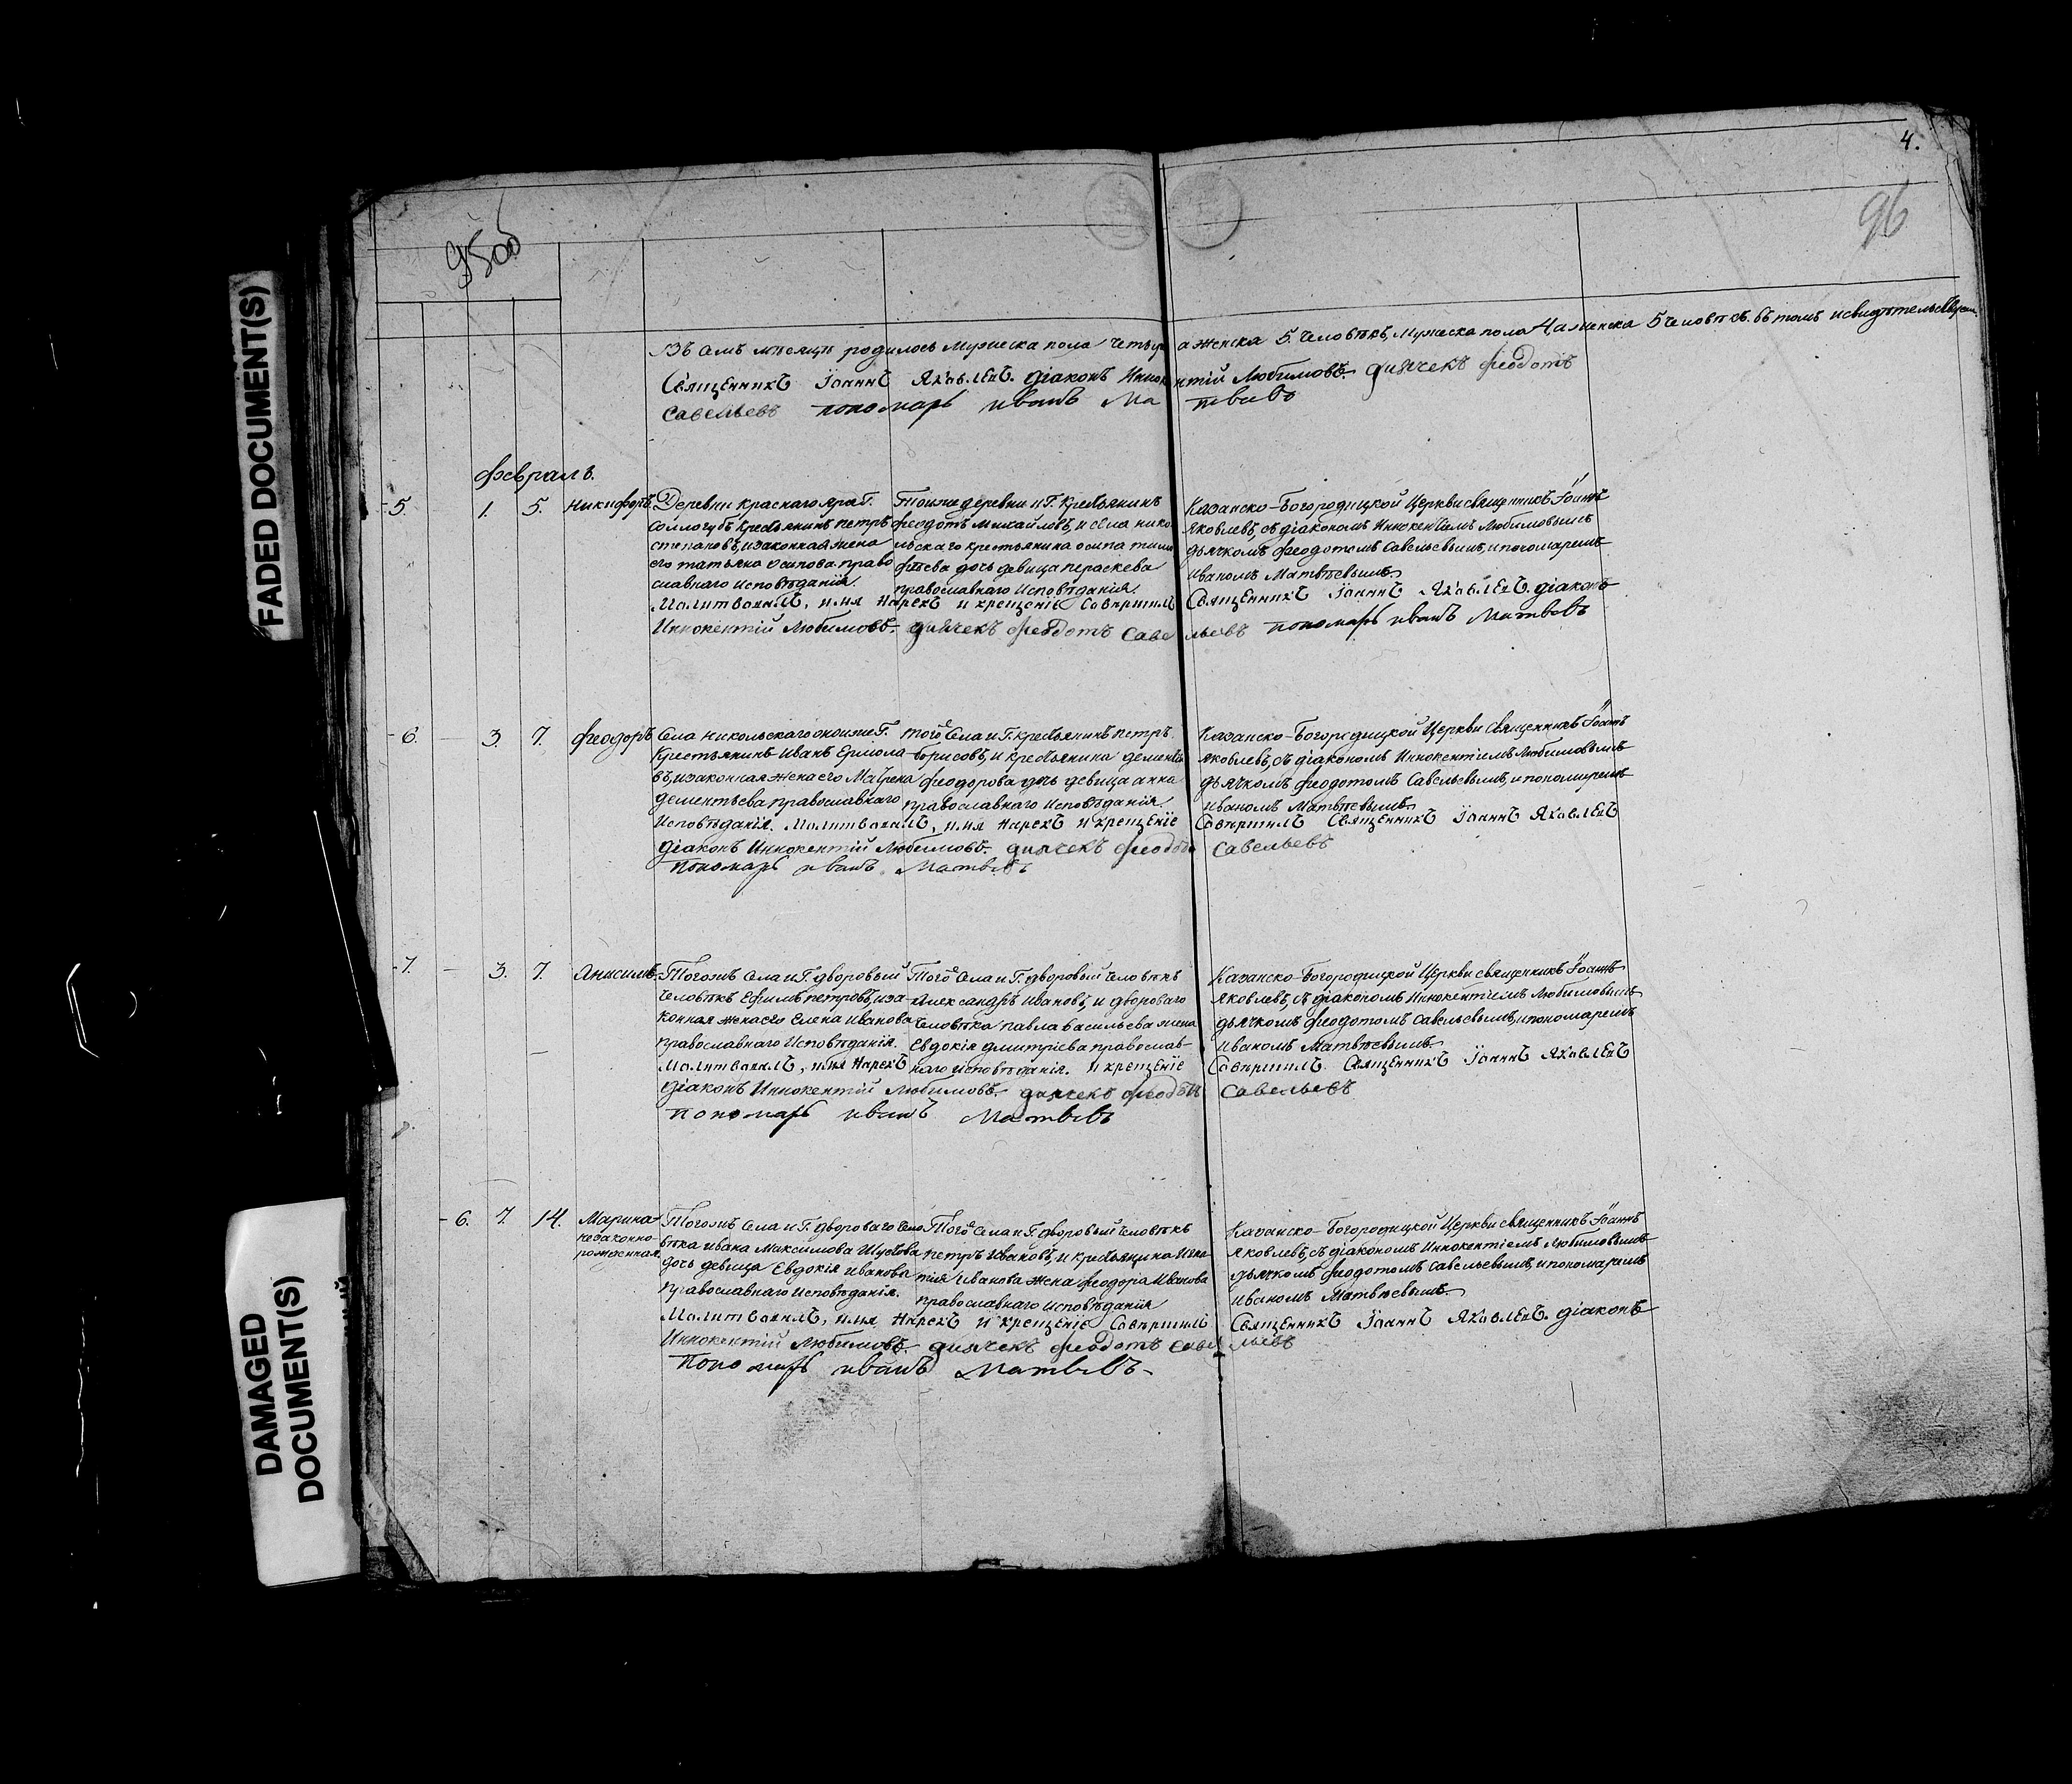 4.
95об
96
Въ семъ мѣсяцѣ родилось мужеска пола четыре а женска 5. Человѣкъ, мужеска пола 4 а женска 5 человѣкъ. въ томъ и свидѣтельствуем
Священникъ Іоаннъ Яковлевъ. діаконъ Иннокентій Любимовъ. диячекъ феодотъ
савельевъ пономарь иванъ Матвевъ
февраль.
5. 1. 5. Никифоръ Деревни Краснаго яра Г. Тоиже деревни и Г. Крестьянинъ Казанско-Богородицкой Церкви священникъ Іоаннъ
Соллогубъ крестьянинъ петръ феодотъ михайловъ, и села нико- Яковлевъ, съ діакономъ Иннокентіемъ Любимовымъ
степановъ, и законная жена льскаго крестьянина осипа тимо дьячкомъ феодотомъ савельевымъ, и пономаремъ
его татьяна осипова. право фѣева дочь девица пераскева иваномъ Матвѣевымъ.
славнаго исповѣданія. православнаго исповѣданія.
Молитвовалъ, имя нарекъ и крещеніе совершилъ Священникъ Іоаннъ Яковлевъ. діаконъ
Иннокентій Любимовъ. диячекъ феодотъ савельевъ пономарь иванъ Матвевъ
6. — 3. 7. феодоръ Села Никольскаго оноиже Г. того села и Г. крестьянинъ петръ Казанско-Богородицкой Церкви священникъ Іоаннъ
Крестьянинъ Иванъ Ермола- борисовъ, и крестьянина дементья яковлевъ, съ діакономъ Иннокентіемъ Любимовымъ
въ, и законная жена его Матрена феодорова дочь девица анна дьячкомъ феодотомъ савельевымъ, и пономаремъ
дементьева православнаго православнаго исповѣданія. иваномъ Матвѣевымъ.
Исповѣданія. Молитвовалъ, имя нарекъ и крещеніе совершилъ Священникъ Іоаннъ Яковлевъ
діаконъ Иннокентій Любимовъ. диячекъ феодотъ савельевъ
пономарь иванъ Матвевъ
7. — 3. 7. Анисимъ. Тогожъ села и Г. дворовый Того села и Г. дворовый человѣкъ Казанско-Богородицкой Церкви священникъ Іоаннъ
человѣкъ Ефимъ петровъ, иза- Александръ Ивановъ, и двороваго яковлевъ, съ діакономъ Иннокентіемъ Любимовымъ
конная жена его Елена Иванова человѣка павла васильева жена дьячкомъ феодотомъ савельевымъ, и пономаремъ
православнаго исповѣданія. Евдокія дмитріева православ- иваномъ Матвѣевымъ.
Молитвовалъ, имя нарекъ наго исповѣданія. и крещеніе совершилъ Священникъ Іоаннъ Яковлевъ
діаконъ Иннокентій Любимовъ. диячекъ феодотъ савельевъ
пономарь иванъ Матвевъ
6. 7. 14. Марина Тогожъ села и Г. двороваго чело- Того села и Г. дворовый человѣкъ Казанско-Богородицкой Церкви священникъ Іоаннъ
незаконно- вѣка ивана Максимова петръ Ивановъ, и крестьянина Игна- яковлевъ, съ діакономъ Иннокентіемъ Любимовымъ
рожденная. дочь девица Евдокія иванова тія Иванова жена феодора Иванова дьячкомъ феодотомъ савельевымъ, и пономаремъ
православнаго исповѣданія. православнаго исповѣданія иваномъ Матвѣевымъ.
Молитвовалъ, имя нарекъ и крещеніе совершилъ Священникъ Іоаннъ Яковлевъ. діаконъ
Иннокентій Любимовъ. диячекъ феодотъ савельевъ
пономарь иванъ Матвевъ
FADED DOCUMENT(S)
DAMAGED
DOCUMENT(S)